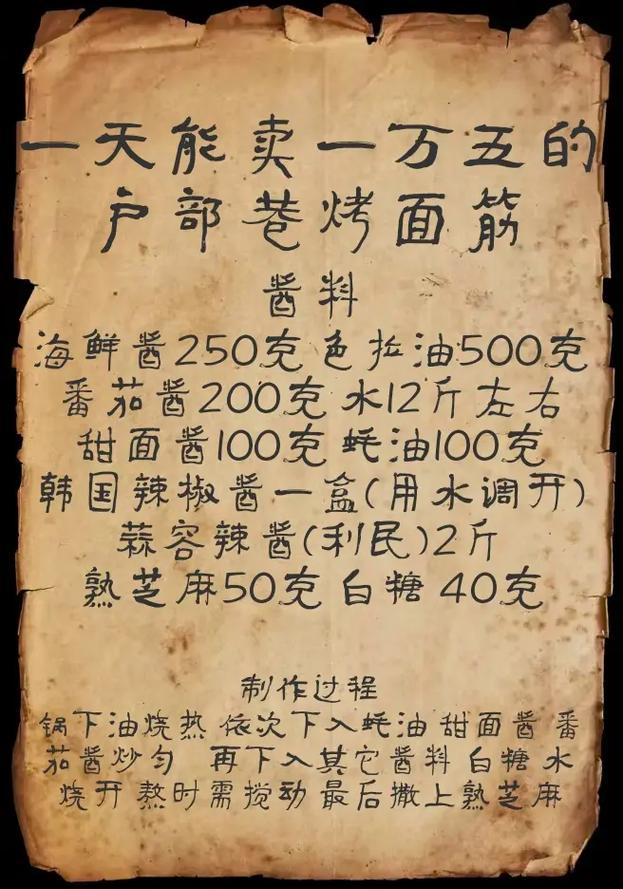 一天能卖一万五的
户部巷烤面筋
酱料
海鲜酱250克 色拉油500克
番茄酱200克 水12斤左右
甜面酱100克 蚝油100克
韩国辣椒酱一盒(用水调开)
蒜容辣酱(利民)2斤
熟芝麻50克 白糖 40克
制作过程
锅下油烧热 依次下入蚝油 甜面酱 番
茄酱炒匀 再下入其它酱料 白糖 水
烧开 熬时需搅动 最后撒上熟芝麻